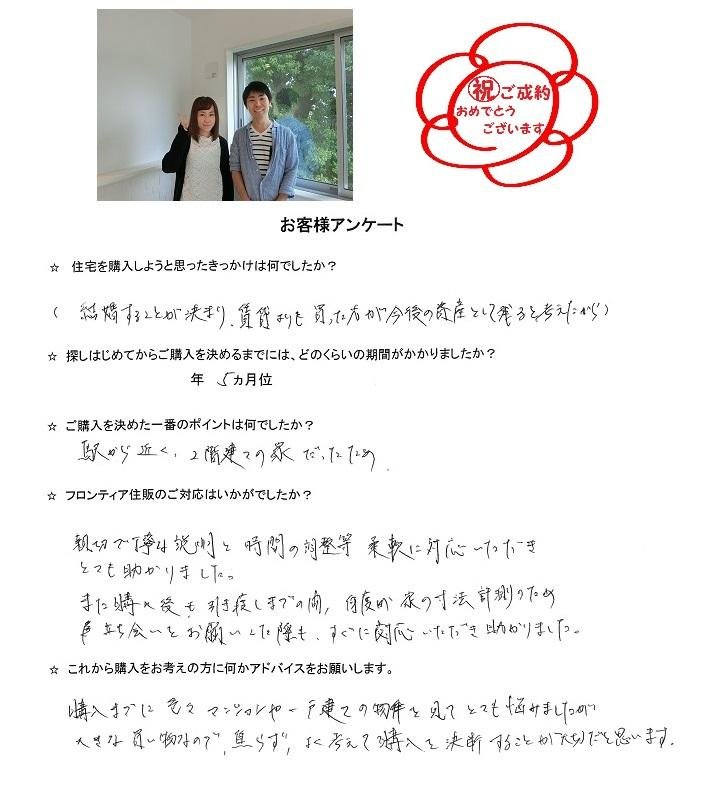 祝ご成約
おめでとう
ございます
お客様アンケート
☆ 住宅を購入しようと思ったきっかけは何でしたか？
( 結婚することが決まり、賃貸よりも買った方が今後の資産として残ると考えたから)
☆ 探しはじめてからご購入を決めるまでには、どのくらいの期間がかかりましたか？
年 5ヵ月位
☆ ご購入を決めた一番のポイントは何でしたか？
駅から近く、2階建ての家だったため.
☆ フロンティア住販のご対応はいかがでしたか？
親切で丁寧な説明と時間の調整等柔軟に対応いただき
とても助かりました。
また購入後も、引き渡しまでの間、何度か家の寸法計測のため
立ち会いをお願いした際も、すぐに対応いただき助かりました。
☆ これから購入をお考えの方に何かアドバイスをお願いします。
購入までに色々マンションや一戸建ての物件を見てとても悩みましたが
大きな買い物なので、焦らず、よく考えて購入を決断することが大切だと思います.